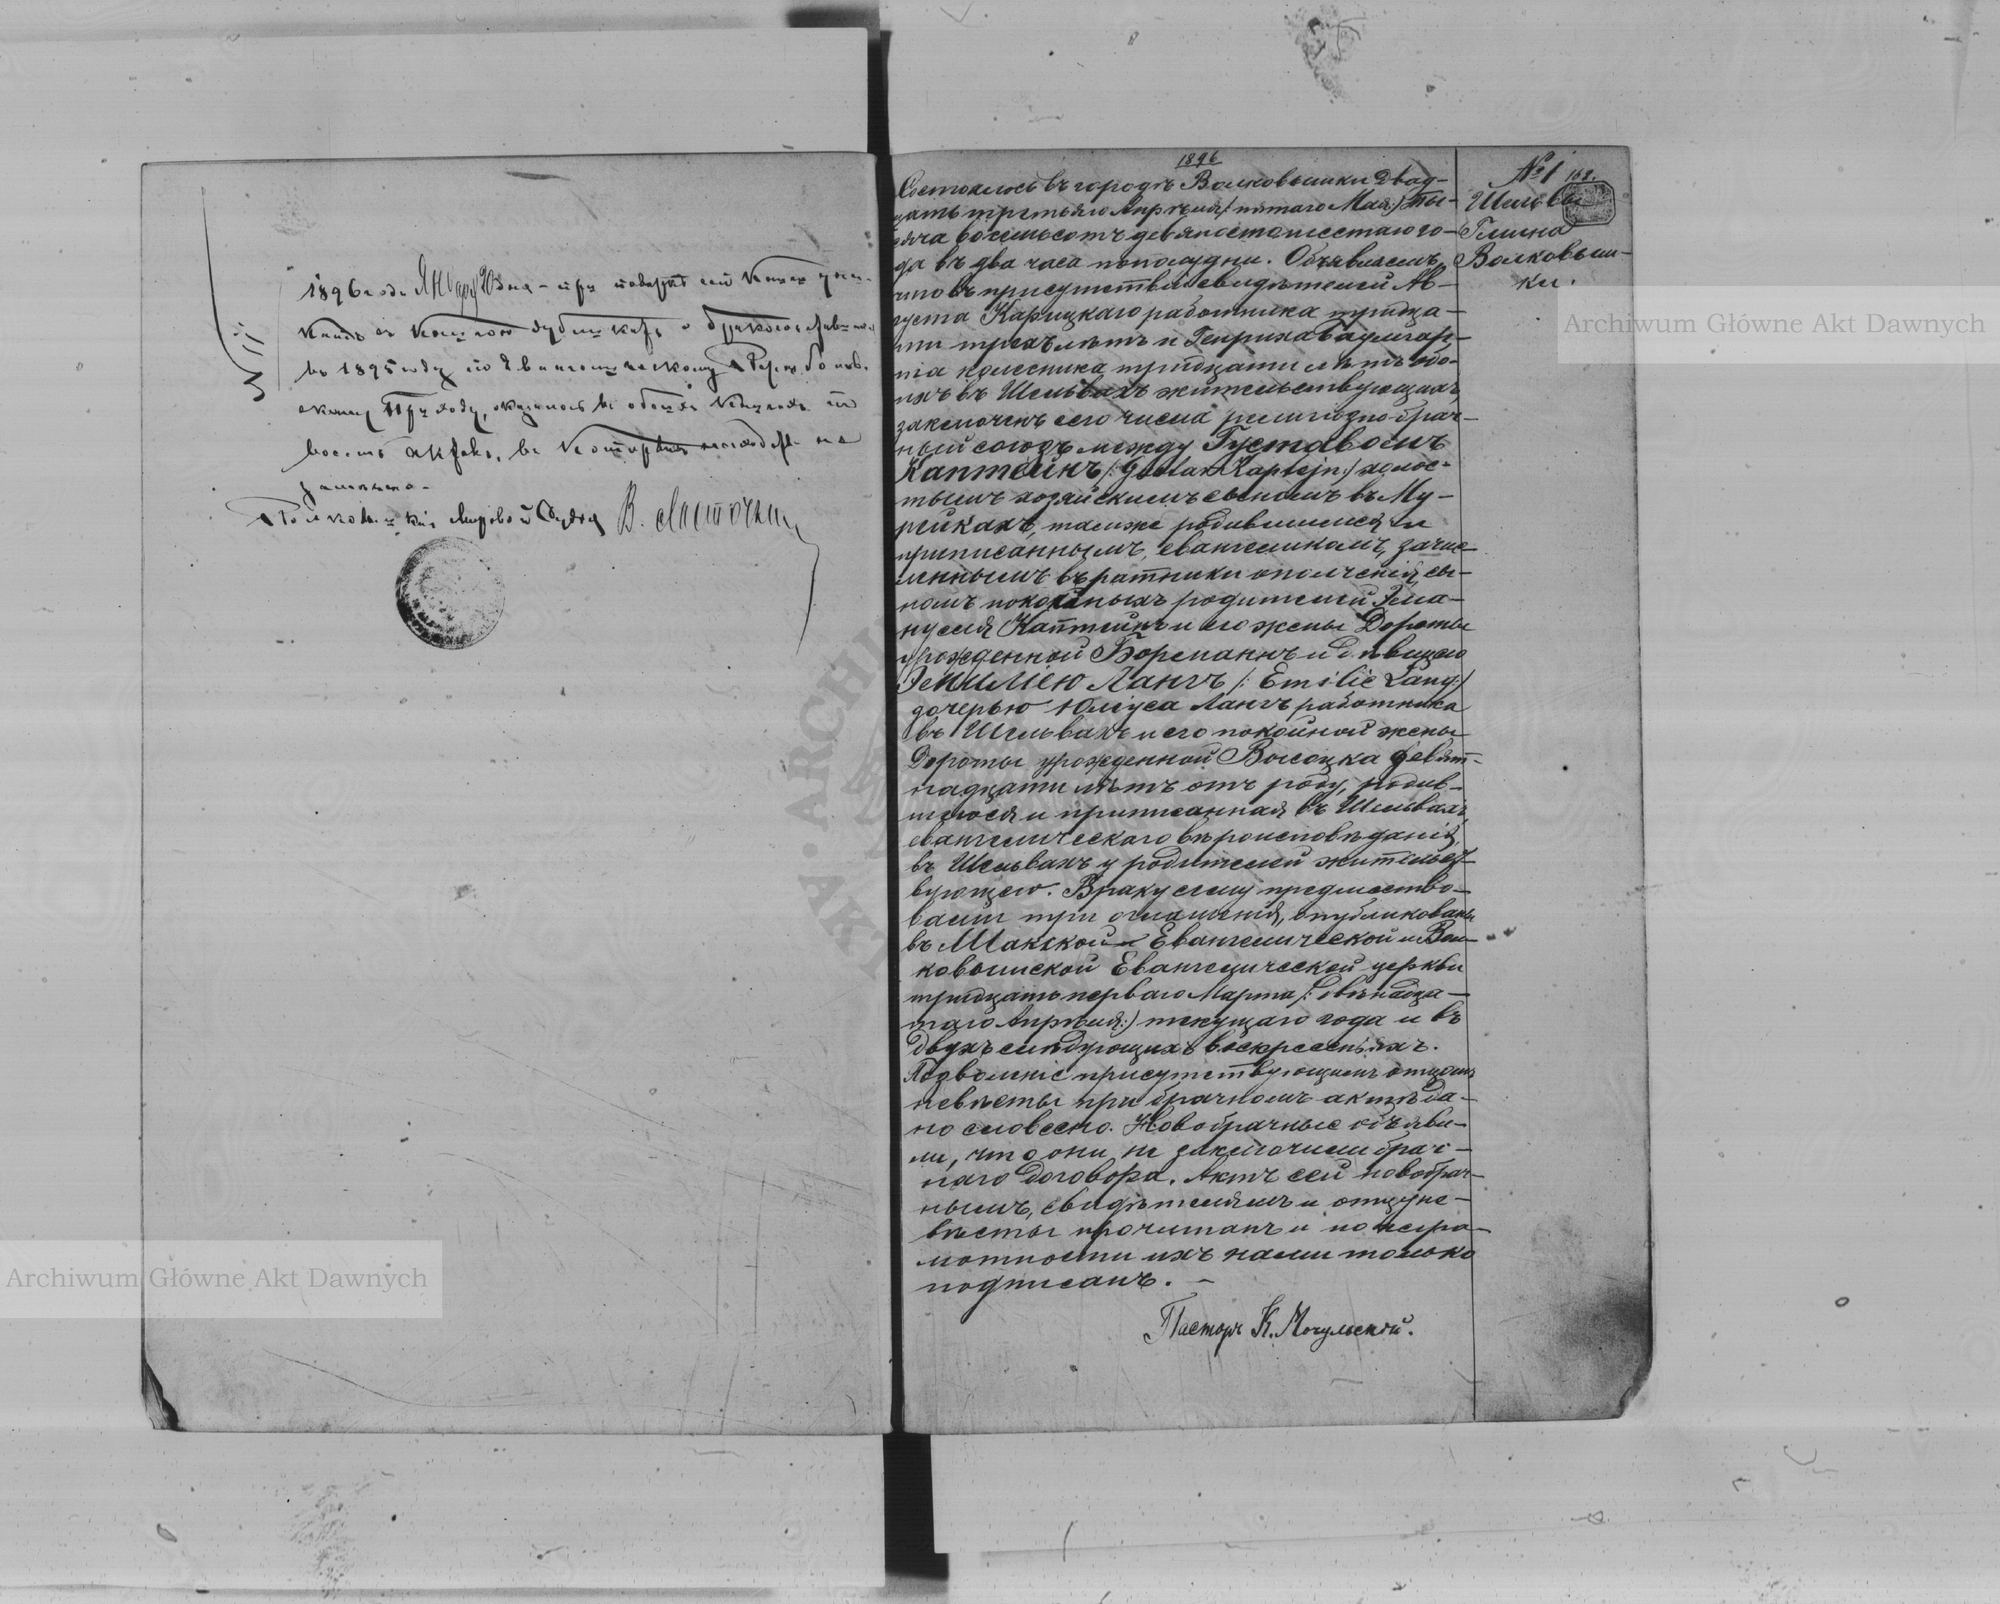 1896 года Января 20 дня – при поверке сей книги
въ 1895 году по Евангелическому
скому Приходу, оказалось въ обеихъ книгахъ по
восемь актовъ, въ которыхъ
Мировой Судья В. Ласточкин
1896
Состоялось въ городѣ Волковышки двад-
цать третьяго Апрѣля /: пятаго Мая :/ ты-
сяча восемьсотъ девяносто шестаго го-
да въ два часа пополудни. Объявляемъ,
что въ присутствіи свидѣтелей Ав-
густа Карицкаго работника тридца-
ти трехъ лѣтъ и Генриха
колесника тридцати лѣтъ обо-
ихъ въ Шельвахъ жительствующихъ,
заключенъ сего числа религіозно брач-
ный союзъ между Густавомъ
Каптейнъ /: Gustav Kaptejn :/ холос-
тымъ хозяйскимъ сыномъ въ Му-
рейкахъ, тамже родившимся и
приписаннымъ, евангеликомъ, зачис-
леннымъ въ ратники ополченія, сы-
номъ покойныхъ родителей Эма-
нуеля Каптейнъ и его жены Дороты
урожденной Борманнъ и дѣвицею
Эмиліею Лангъ /: Emilie Lang :/
дочерью Юліуса Лангъ работника
въ Шельвахъ и его покойной жены
Дороты урожденной Высоцка девят-
надцати лѣтъ отъ роду, родив-
шеюся и приписанная въ Шельвахъ,
евангелическаго вѣроисповѣданія,
въ Шельвахъ у родителей жительст-
вующею. Браку сему предшество-
вали три оглашенія, опубликованы
въ Шакской Евангелической и Вол-
ковышской Евангелической церкви
тридцать перваго Марта /: двѣнадца-
таго Апрѣля :/ текущаго года и въ
двухъ слѣдующихъ воскресеньяхъ.
Позволеніе присутствующимъ отцомъ
невѣсты при брачномъ актѣ да-
но словесно. Новобрачные объяви-
ли, что они не заключили брач-
наго договора. Актъ сей новобрач-
нымъ, свидѣтелямъ и отцу не-
вѣсты прочитанъ и по негра-
мотности ихъ нами только
подписанъ. –
Пасторъ К. Мочульской.
№ 1
162.
Шельвы
Гмина
Волковыш-
ки.
Archiwum Główne Akt Dawnych
Archiwum Główne Akt Dawnych